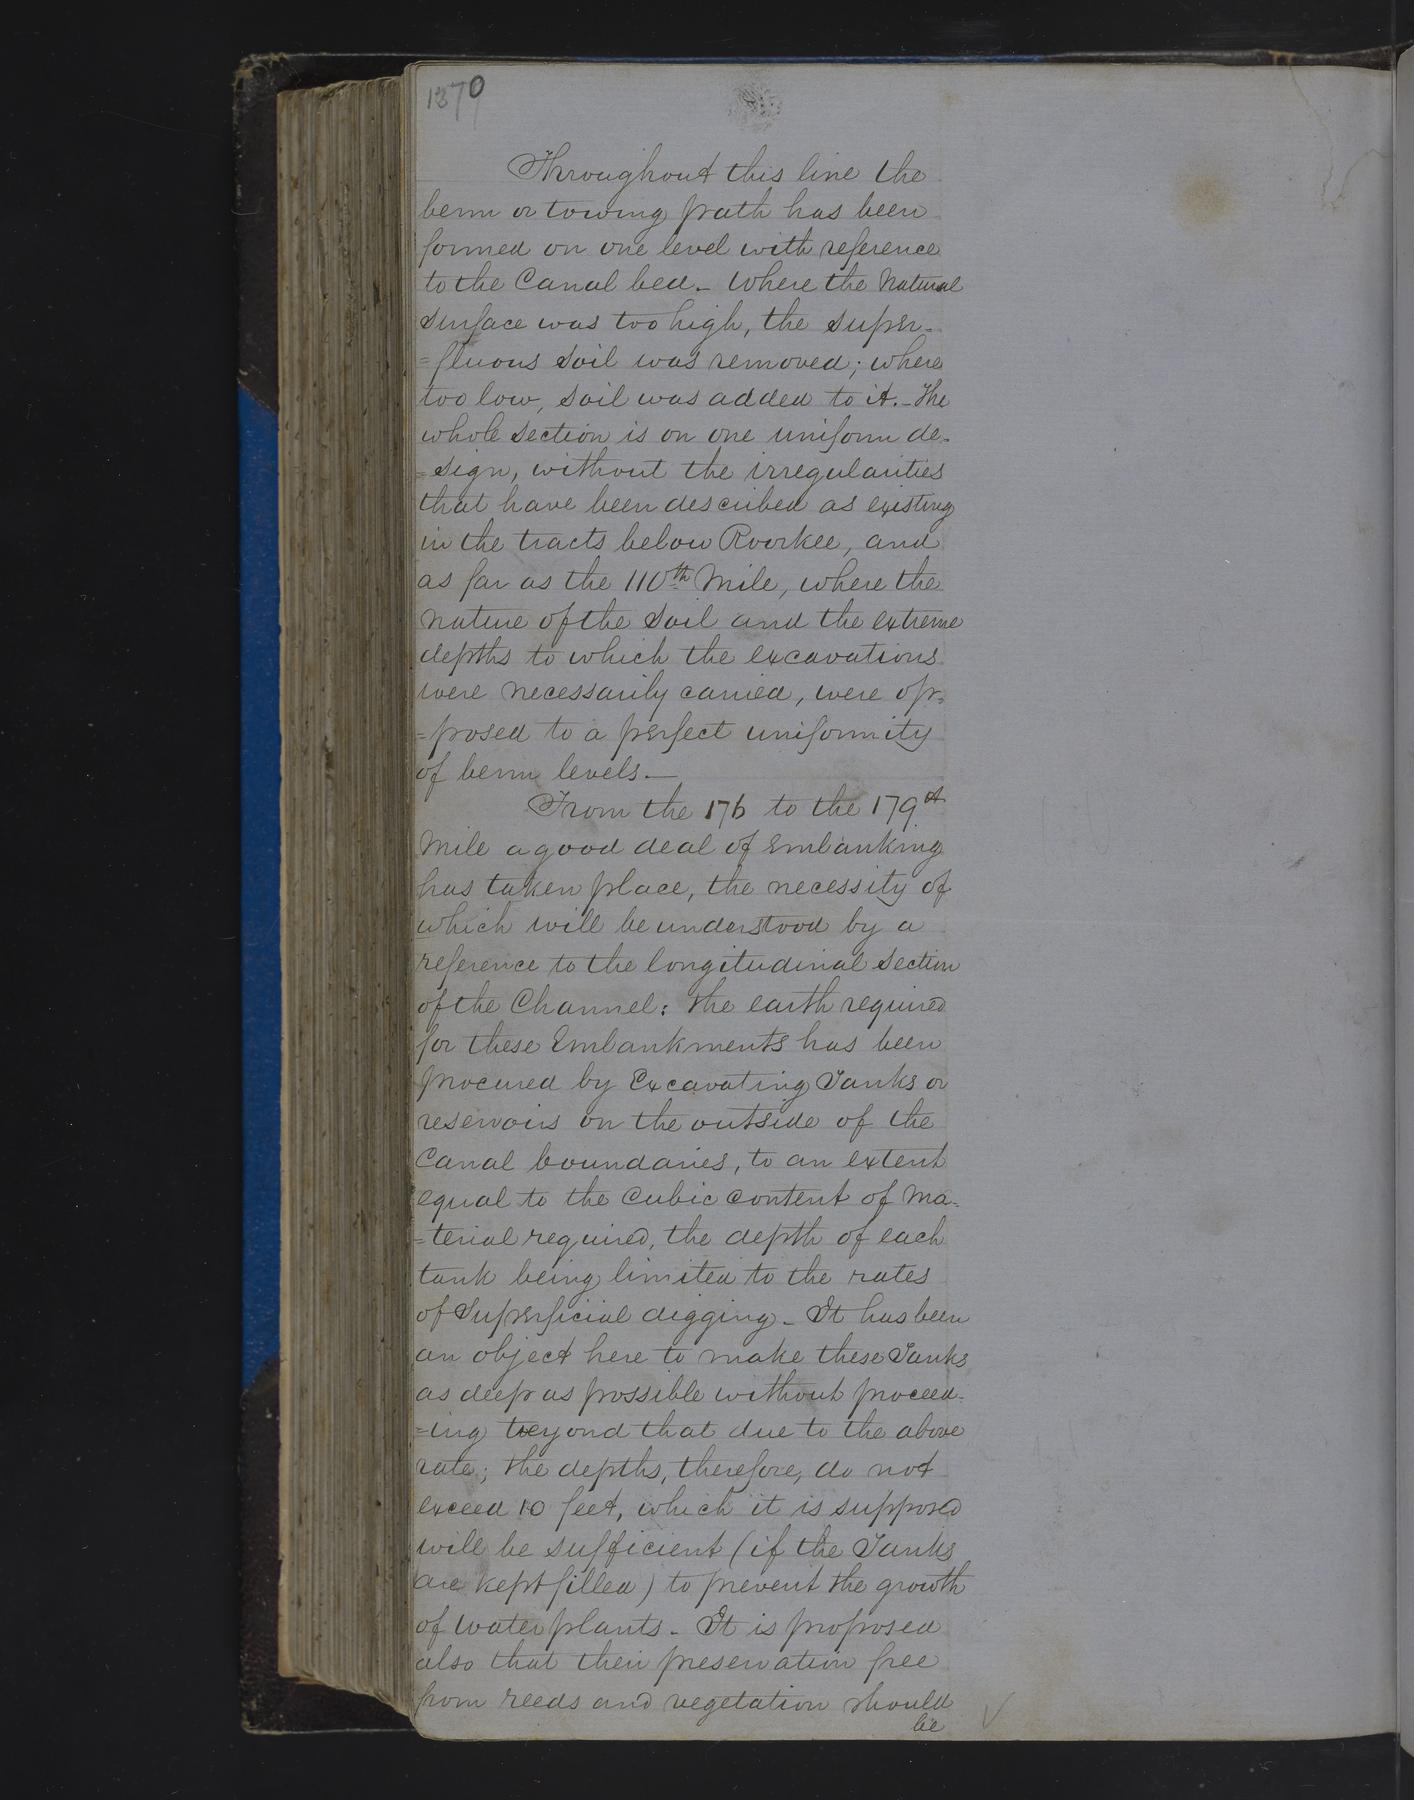 1370
Throughout this line the
berm or towing path has been
formed on one level with reference
to the Canal bed_ Where the Natural
Surface was too high, the super-
=fluous soil was removed; where
too low, soil was added to it._ The
whole section is on one uniform de-
=sign, without the irregularities
that have been described as existing
in the tracts below Roorkee, and
as far as the 110th Mile, where the
nature of the soil and the extreme
depths to which the excavations
were necessarily carried, were op-
=posed to a perfect uniformity
of berm levels._
From the 176 to the 179th
Mile a good deal of Embanking
has taken place, the necessity of
which will be understood by a
reference to the longitudinal section
of the Channel: the earth required
for these Embankments has been
procured by Excavating Tanks or
reservoirs on the outside of the
Canal boundaries, to an extent
equal to the Cubic content of Ma-
=terial required, the depth of each
tank being limited to the rates
of Superficial digging_ It has been
an object here to make these Tanks
as deep as possible without proceed-
=ing beyond that due to the above
rate; the depths, therefore, do not
exceed 10 feet, which it is supposed
will be sufficient (if the Tanks
are kept filled) to prevent the growth
of water plants_ It is proposed
also that their preservation free
from reeds and vegetation should
be